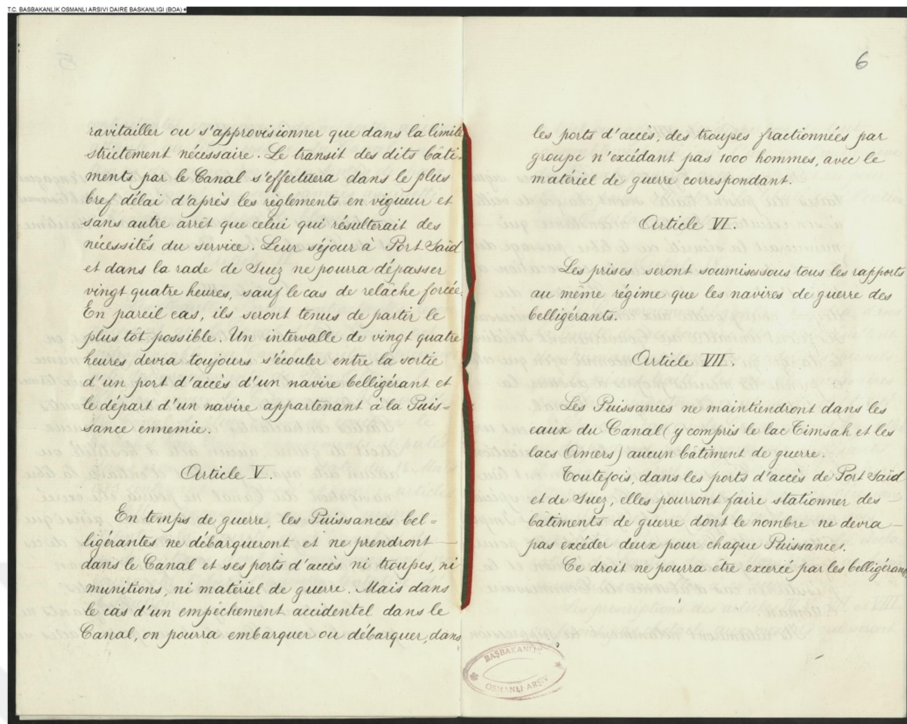 T.C. BASBAKANLIK OSMANLI ARSIVI DAIRE BASKANLIGI (BOA)
ravitailler ou s'approvisionner que dans la limite
strictement nécessaire. Le transit des dits bâti-
ments par le Canal s'effectuera dans le plus
bref délai d'après les règlements en vigueur et
sans autre arrêt que celui qui résulterait des
nécessités du service. Leur séjour à Port Saïd
et dans la rade de Suez ne pourra dépasser
vingt quatre heures, sauf le cas de relâche forcée.
En pareil cas, ils seront tenus de partir le
plus tôt possible. Un intervalle de vingt quatre
heures devra toujours s'écouter entre la sortie
d'un port d'accès d'un navire belligérant et
le départ d'un navire appartenant à la Puis-
sance ennemie.
Article V.
En temps de guerre, les Puissances bel-
ligérantes ne débarqueront et ne prendront
dans le Canal et ses ports d'accès ni troupes, ni
munitions, ni matériel de guerre. Mais dans
le cas d'un empêchement accidentel dans le
Canal, on pourra embarquer ou débarquer, dans
6
les ports d'accès, des troupes fractionnées par
groupe n'excédant pas 1000 hommes, avec le
matériel de guerre correspondant.
Article VI.
Les prises seront soumises sous tous les rapports
au même régime que les navires de guerre des
belligérants.
Article VII.
Les Puissances ne maintiendront dans les
eaux du Canal (y compris le lac Timsah et les
lacs Amers) aucun bâtiment de guerre.
Toutefois, dans les ports d'accès de Port Saïd
et de Suez, elles pourront faire stationner des
bâtiments de guerre dont le nombre ne devra
pas excéder deux pour chaque Puissance.
Ce droit ne pourra être exercé par les belligérants
BAŞBAKANLIK
OSMANLI ARŞİV